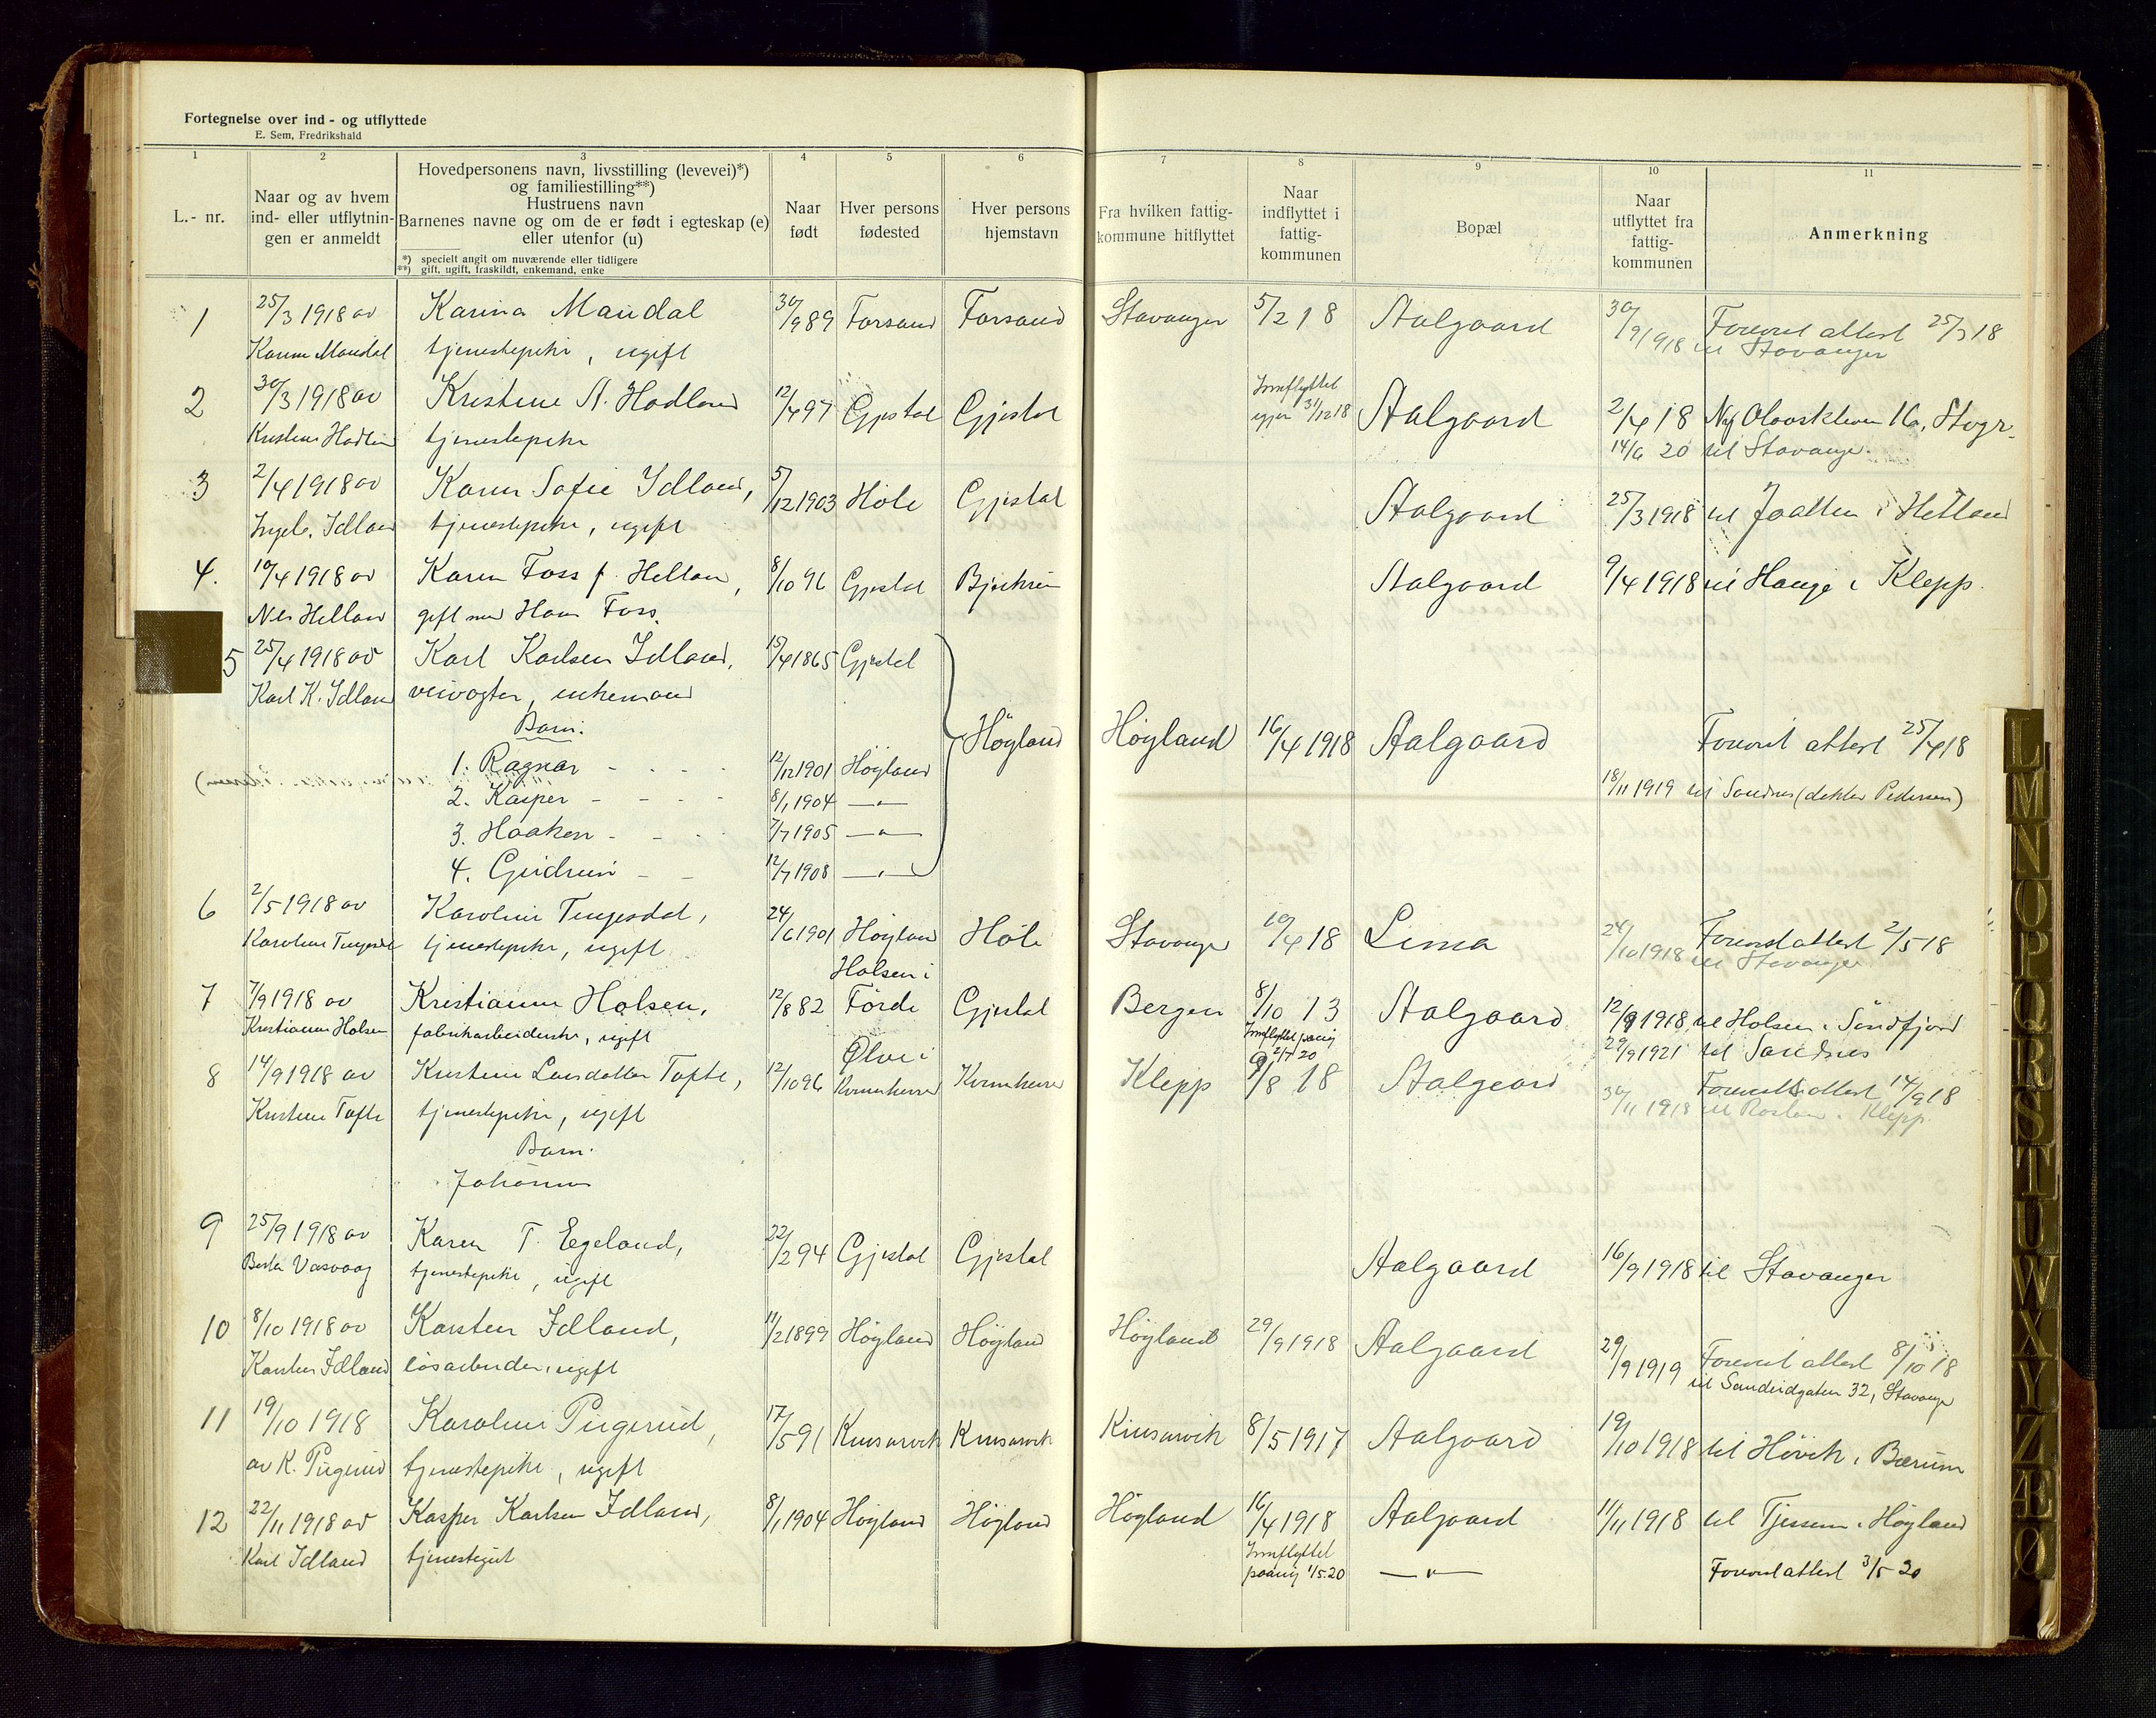 Fortegnelse over ind- og utflyttede
E. Sem, Fredrikshald
1 2 3 4 5 6 7 8 9 10 11
L.- nr.
Naar og av hvem
ind- eller utflytnin-
gen er anmeldt
Hovedpersonens navn, livsstilling (levevei)*)
og familiestilling**)
Hustruens navn
Barnenes navne og om de er født i egteskap (e)
eller utenfor (u)
*) specielt angit om nuværende eller tidligere
**) gift, ugift, fraskildt, enkemand, enke
Naar
født
Hver persons
fødested
Hver persons
hjemstavn
Fra hvilken fattig-
kommune hitflyttet
Naar
indflyttet i
fattig-
kommunen
Bopæl
Naar
utflyttet fra
fattig-
kommunen
Anmerkning
1 25/3 1918 av Karina Maudal 30/9 89 Forsand Forsand Stavanger 5/2 18 Aalgaard 30/9 1918 Forevist attest 25/3 18
Karina Maudal tjenestepike, ugift til Stavanger
2 30/3 1918 av Kristine A. Hadland 12/4 97 Gjestal Gjestal Innflyttet igjen 31/12 18 Aalgaard 2/4 18 Ny Olavskleven 16, Stvgr.
Kristine Hadland tjenestepike 14/6 20 til Stavanger.
3 2/4 1918 av Karen Sofie Idland, 5/12 1903 Höle Gjestal Aalgaard 25/3 1918 til Jaatten i Hetland
Ingeb. Idland tjenestepike, ugift
4. 10/4 1918 av Karen Foss f. Helland, 8/10 96 Gjestal Bjerkrein Aalgaard 9/4 1918 til Hauge i Klepp.
Nils Helland gift med Hans Foss.
5 25/4 1918 av Karl Karlsen Idland, 15/4 1865 Gjestal
Karl K. Idland veivogter, enkemand
Barn:
Höyland Höyland 16/4 1918 Aalgaard Forevist attest 25/4 18
1. Ragnar - - - - 12/12 1901 Höyland
18/11 1919 til Sandnes (dekter Pedersen)
2. Kasper - - - - 8/1 1904 —"—
3. Haaken - - - 7/7 1905 —"—
4. Gudrun - - 12/7 1908 —"—
6 2/5 1918 av Karoline Tengesdal, 24/6 1901 Höyland Höle Stavanger 10/4 18 Lima 24/10 1918 Forevist attest 2/5 18
Karoline Tengesdal tjenestepike, ugift til Stavanger
7 7/9 1918 av Kristianna Holsen, 12/8 82 Holsen i Förde Gjestal Bergen 8/10 13 Aalgaard 12/9 1918 til Holsen i Söndfjord
Kristianna Holsen fabrikarbeiderske, ugift Innflyttet paany 2/7 20 29/9 1921 til Sandnes
8 14/9 1918 av Kristine Larsdatter Tofte, 12/10 96 Ölve i Kvinnherred Kvinnherred Klepp 9/8 18 Aalgaard Forevist attest 14/9 18
Kristine Tofte tjenestepike, ugift 30/11 1918 til Klepp
Barn:
Johannes
9 25/9 1918 av Karen T. Egeland, 22/2 94 Gjestal Gjestal Aalgaard 16/9 1918 til Stavanger
Vasvaag tjenestepike, ugift
10 8/10 1918 av Karsten Idland, 11/2 1899 Höyland Höyland Höyland 29/9 1918 Aalgaard 29/9 1919 Forevist attest 8/10 18
Karsten Idland lösarbeider, ugift til Sandeidgaten 32, Stavanger
11 19/10 1918 Karoline Pugerud, 17/5 91 Kinsarvik Kinsarvik Kinsarvik 8/5 1917 Aalgaard 19/10 1918 til Hövik i Bærum
av K. Pugerud tjenestepike, ugift
12 22/11 1918 av Kasper Karlsen Idland, 8/1 1904 Höyland Höyland Höyland 16/4 1918 Aalgaard 11/11 1918 til Tjessem i Höyland
Karl Idland tjenestegut Innflyttet paany 1/5 20 —"— Forevist attest 3/5 20
L
M
N
O
P
Q
R
S
T
U
W
X
Y
Z
Æ
Ø